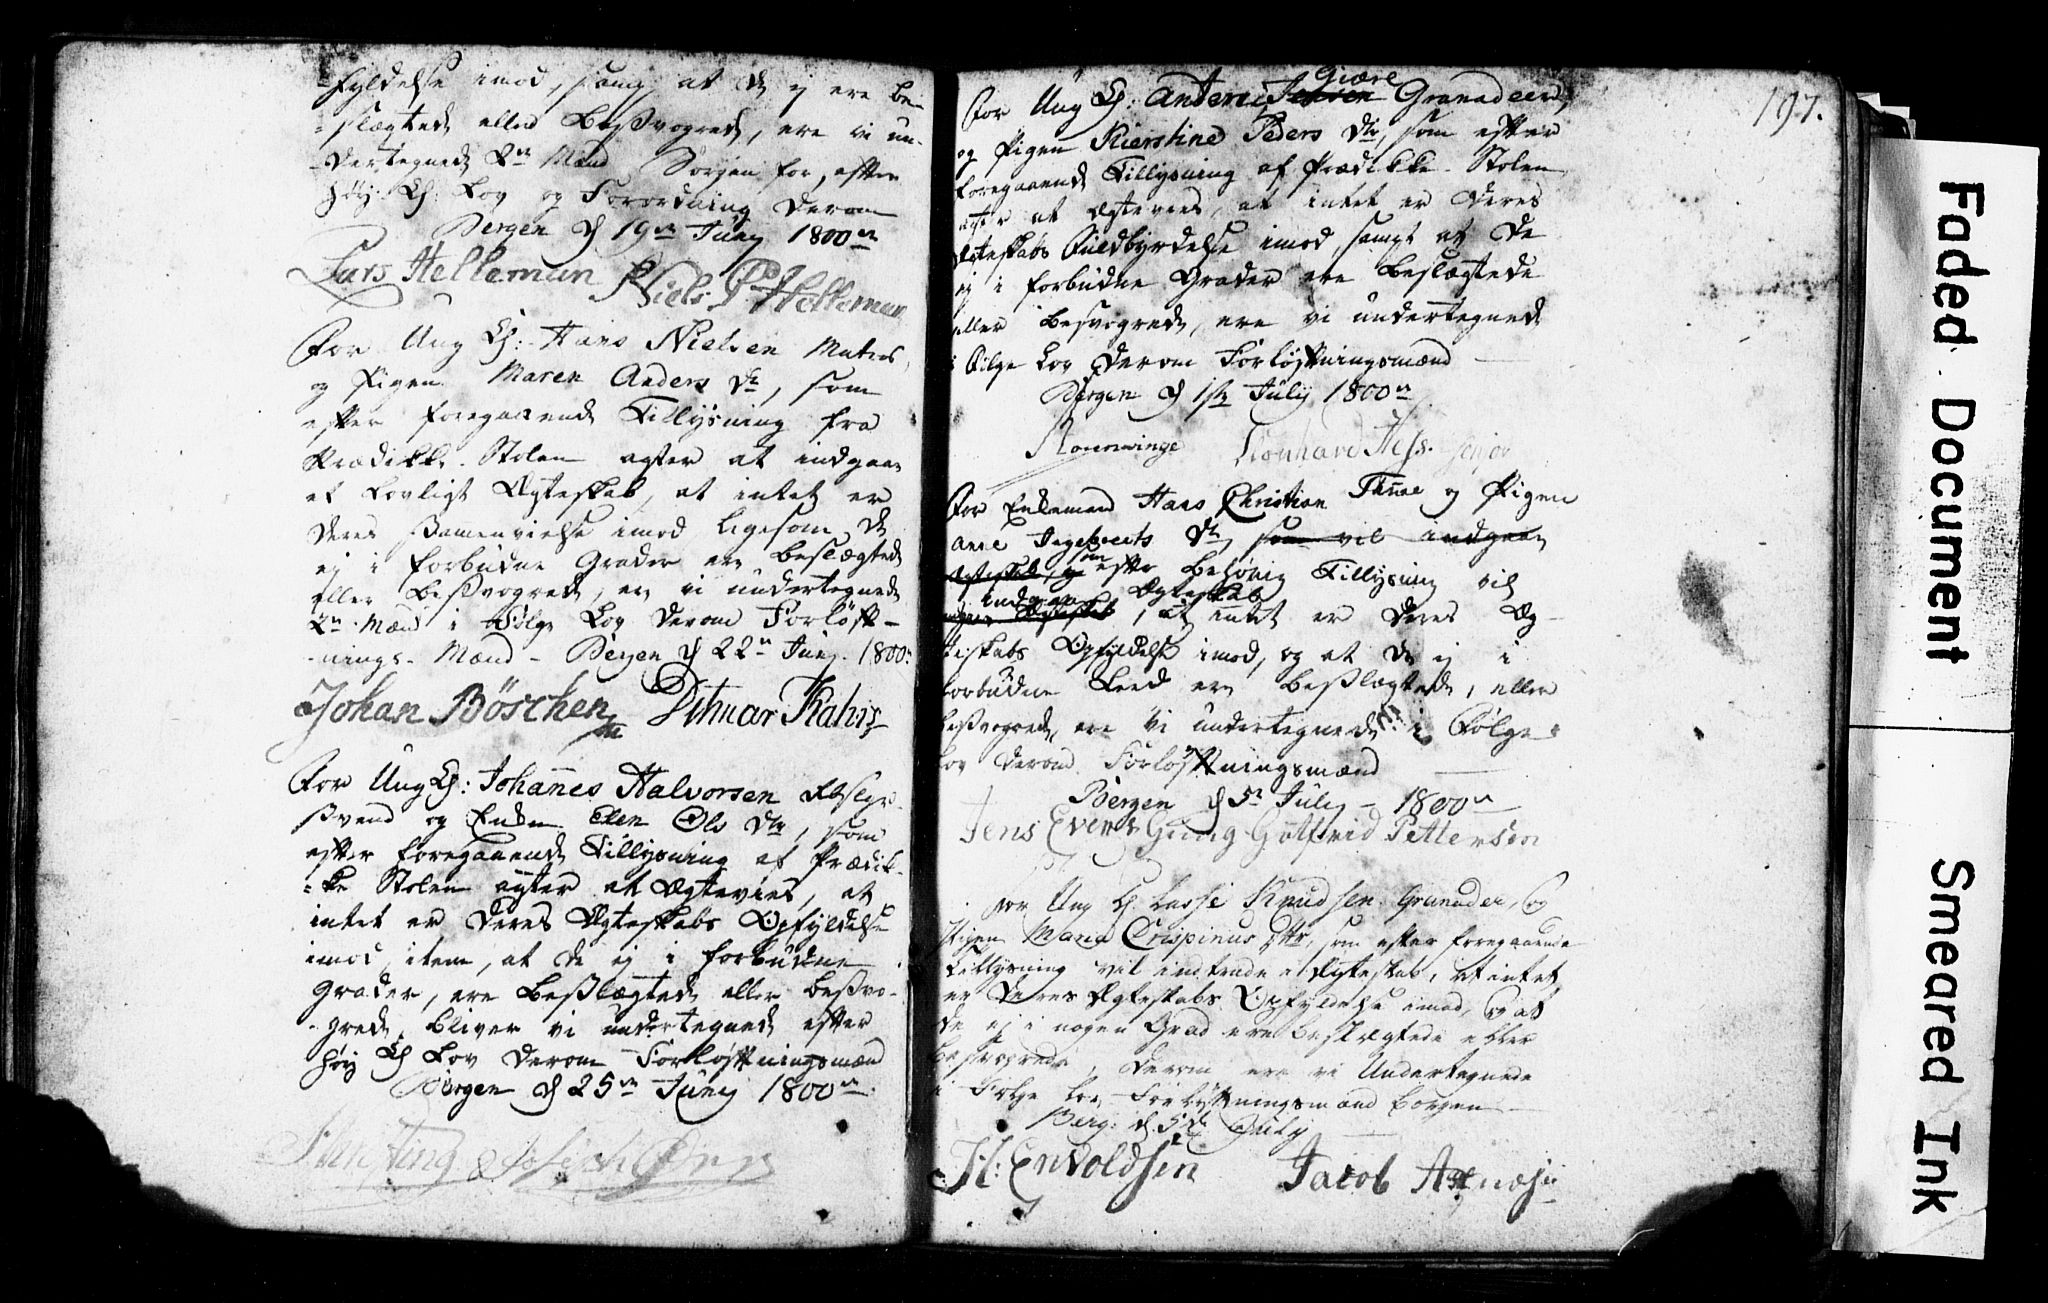 fyldelse imod, samt at de ej ere be-
-slægtede eller Besvogrede, ere vi un-
-dertegnede 2de Mænd Borgen for, efter
høy: K: Lov og Forordning derom
Bergen d 19de Junij 1800de
Lars Helleman Niels P Helleman
For Ung K: Hans Nielsen Matros,
og Pigen Maren Anders D:, som
efter foregaaende Tillysning fra
Prædikke-Stolen agter at indgaae
et Lovligt Ægteskab, at intet er
deres Samenvielse imod ligesom de
ej i forbudne Grader ere beslægtede
eller besvogrede, ere vi undertegnede
2de Mænd i Følge Lov derom Forløft-
-nings-Mænd - Bergen d 22de Junij 1800de
Johan Böschen Ditmar Kahrs
For Ung K: Johannes Halvorsen
svend og Enken Elen Ols Dtr, som
efter foregaaende Tillysning af Prædik-
-ke Stolen agter at Ægtevies, at
intet er deres Ægteskabs Opfyldelse
imod, item, at de ej i forbudne
Grader, ere Beslægtede eller besvo-
-grede, bliver vi undertegnede efter
høy K Lov derom Forløftningsmænd
Bergen d 25de Junij 1800de
Joseph
197.
Giære
For Ung K: Anders Jensen Granadeer,
og Pigen Kierstine Peders Dtr, som efter
foregaaende Tillysning af Prædikke-Stolen
agter at Ægtevies, at intet er deres
Ægteskabs Fuldbyrdelse imod, samt at de
ej i forbudne Grader ere Beslægtede
eller besvogrede, ere vi undertegnede
i Følge Lov derom Forløftningsmænd
Bergen d 1ste Julij 1800de
Rononvinge Lionhard Hess.
For Enkemand Hans Christian Thue og Pigen
Ane Ingebrets Dtr, som vil indgaae
Ægteskab, og som efter behørig Tillysning vil
indgaae Ægteskab
Ægteskab, at intet er deres Æg-
teskabs Opfyldelse imod, og at de ej i
forbudne Leed ere beslægtede, eller
besvogrede, ere vi undertegnede i Følge
Lov derom Forløftningsmænd
Bergen d 5te Julij - 1800de
Jens Evers Georg Gotfrid Petterson
For Ung K. Lasse Knudsen Granader, og
Pigen Maria Crispinus Dtr, som efter foregaaende
Tillysning vil indtræde i Ægteskab, at intet
er deres Ægteskabs Opfyldelse imod, og at
de ej i nogen Grad ere beslægtede eller
besvogrede, derom ere vi Undertegnede
i Følge Lov Forløftningsmænd Borgen
Berg: d. 5te July
H: Envoldsen Jacob
Faded Document
Smeared Ink